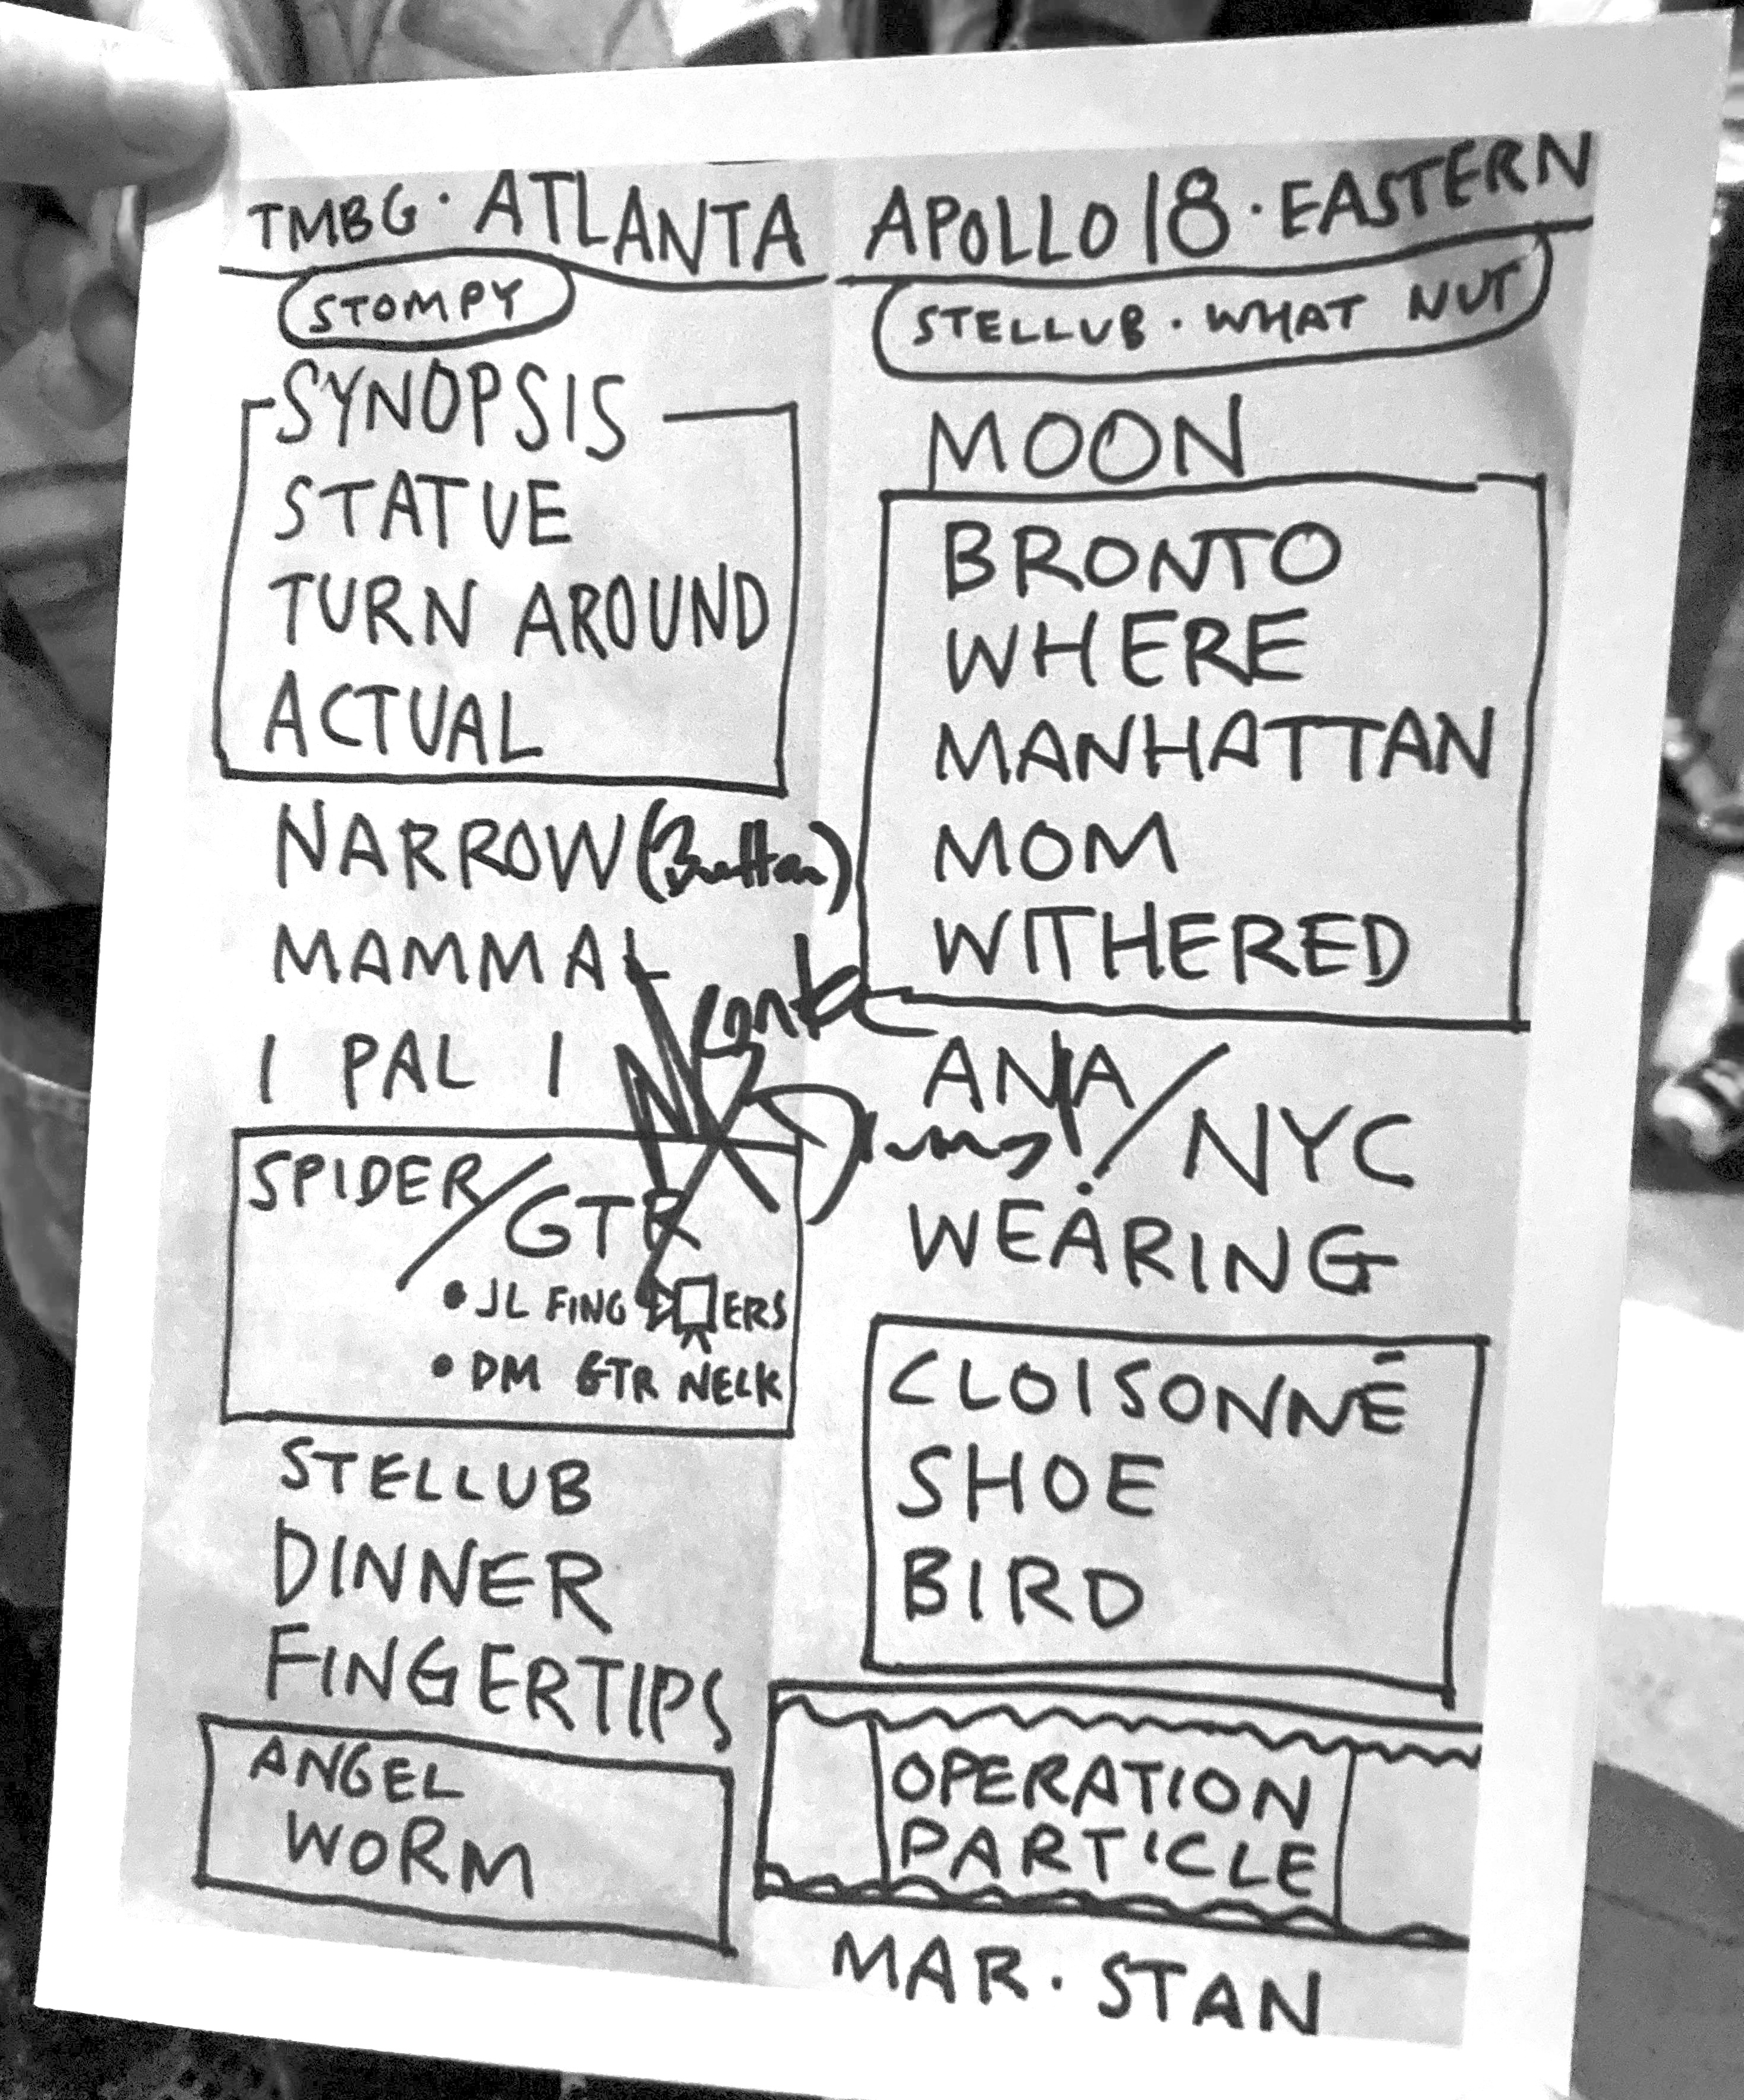 TMBG · ATLANTA
STOMPY
SYNOPSIS
STATUE
TURN AROUND
ACTUAL
NARROW
MAMMAL
I PAL I
SPIDER/GTR
• JL FINGERS
• DM GTR NELK
STELLUB
DINNER
FINGERTIPS
ANGEL
WORM
APOLLO 18 · EASTERN
STELLUB · WHAT NUT
MOON
BRONTO
WHERE
MANHATTAN
MOM
WITHERED
ANA/NYC
WEARING
CLOISONNÉ
SHOE
BIRD
OPERATION
PARTICLE
MAR · STAN